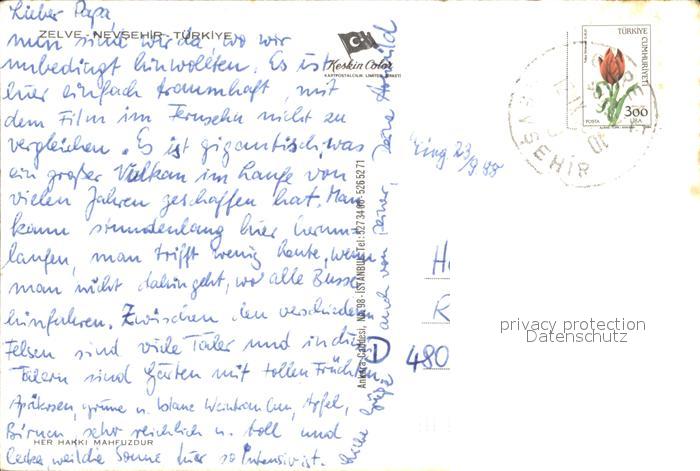 Lieber Papa,
ZELVE - NEVŞEHİR - TÜRKİYE
nun sind wir da, wo wir
unbedingt hinwollten. Es ist
hier einfach traumhaft, mit
dem Film im Fernsehn nicht zu
vergleichen. Es ist gigantisch, was
ein großer Vulkan im Laufe von
vielen Jahren geschaffen hat. Man
kann stundenlang hier herum-
laufen, man trifft wenig Leute, wenn
man nicht dahin geht, wo alle Busse
hinfahren. Zwischen den verschiedenen
Felsen sind viele Täler und in den
Tälern sind Gärten mit tollen Früchten
Aprikosen, grüne u. blaue Weintrauben, Äpfel,
Birnen sehr reichlich u. toll und
HER HAKKI MAHFUZDUR
lecker, weil die Sonne hier so intensiv ist.
Liebe Grüße auch von Rainer, Deine
Keskin Color
KARTPOSTALCILIK LIMITED ŞİRKETİ
Ankara Caddesi, No. 98 - İSTANBUL Tel: 527 34 08 - 526 52 71
TÜRKİYE
CUMHURİYETİ
POSTA
300
LİRA
NEVŞEHİR
Eing 23/9 88
D
480
privacy protection
Datenschutz